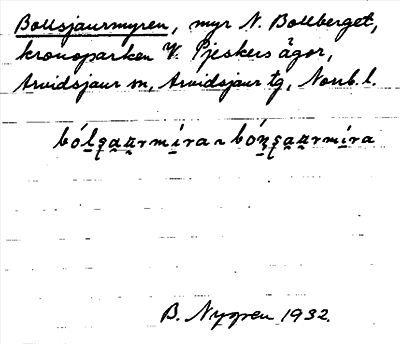 Bollsjaurmyren, myr N. Bollberget,
kronoparken V. Pjeskers ägor,
Arvidsjaur sn, Arvidsjaur tg, Norrb. l.
B. Nygren 1932.